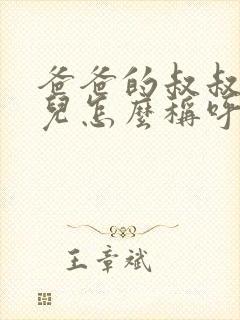 爸爸的叔叔
兒怎麼稱呼
王章斌